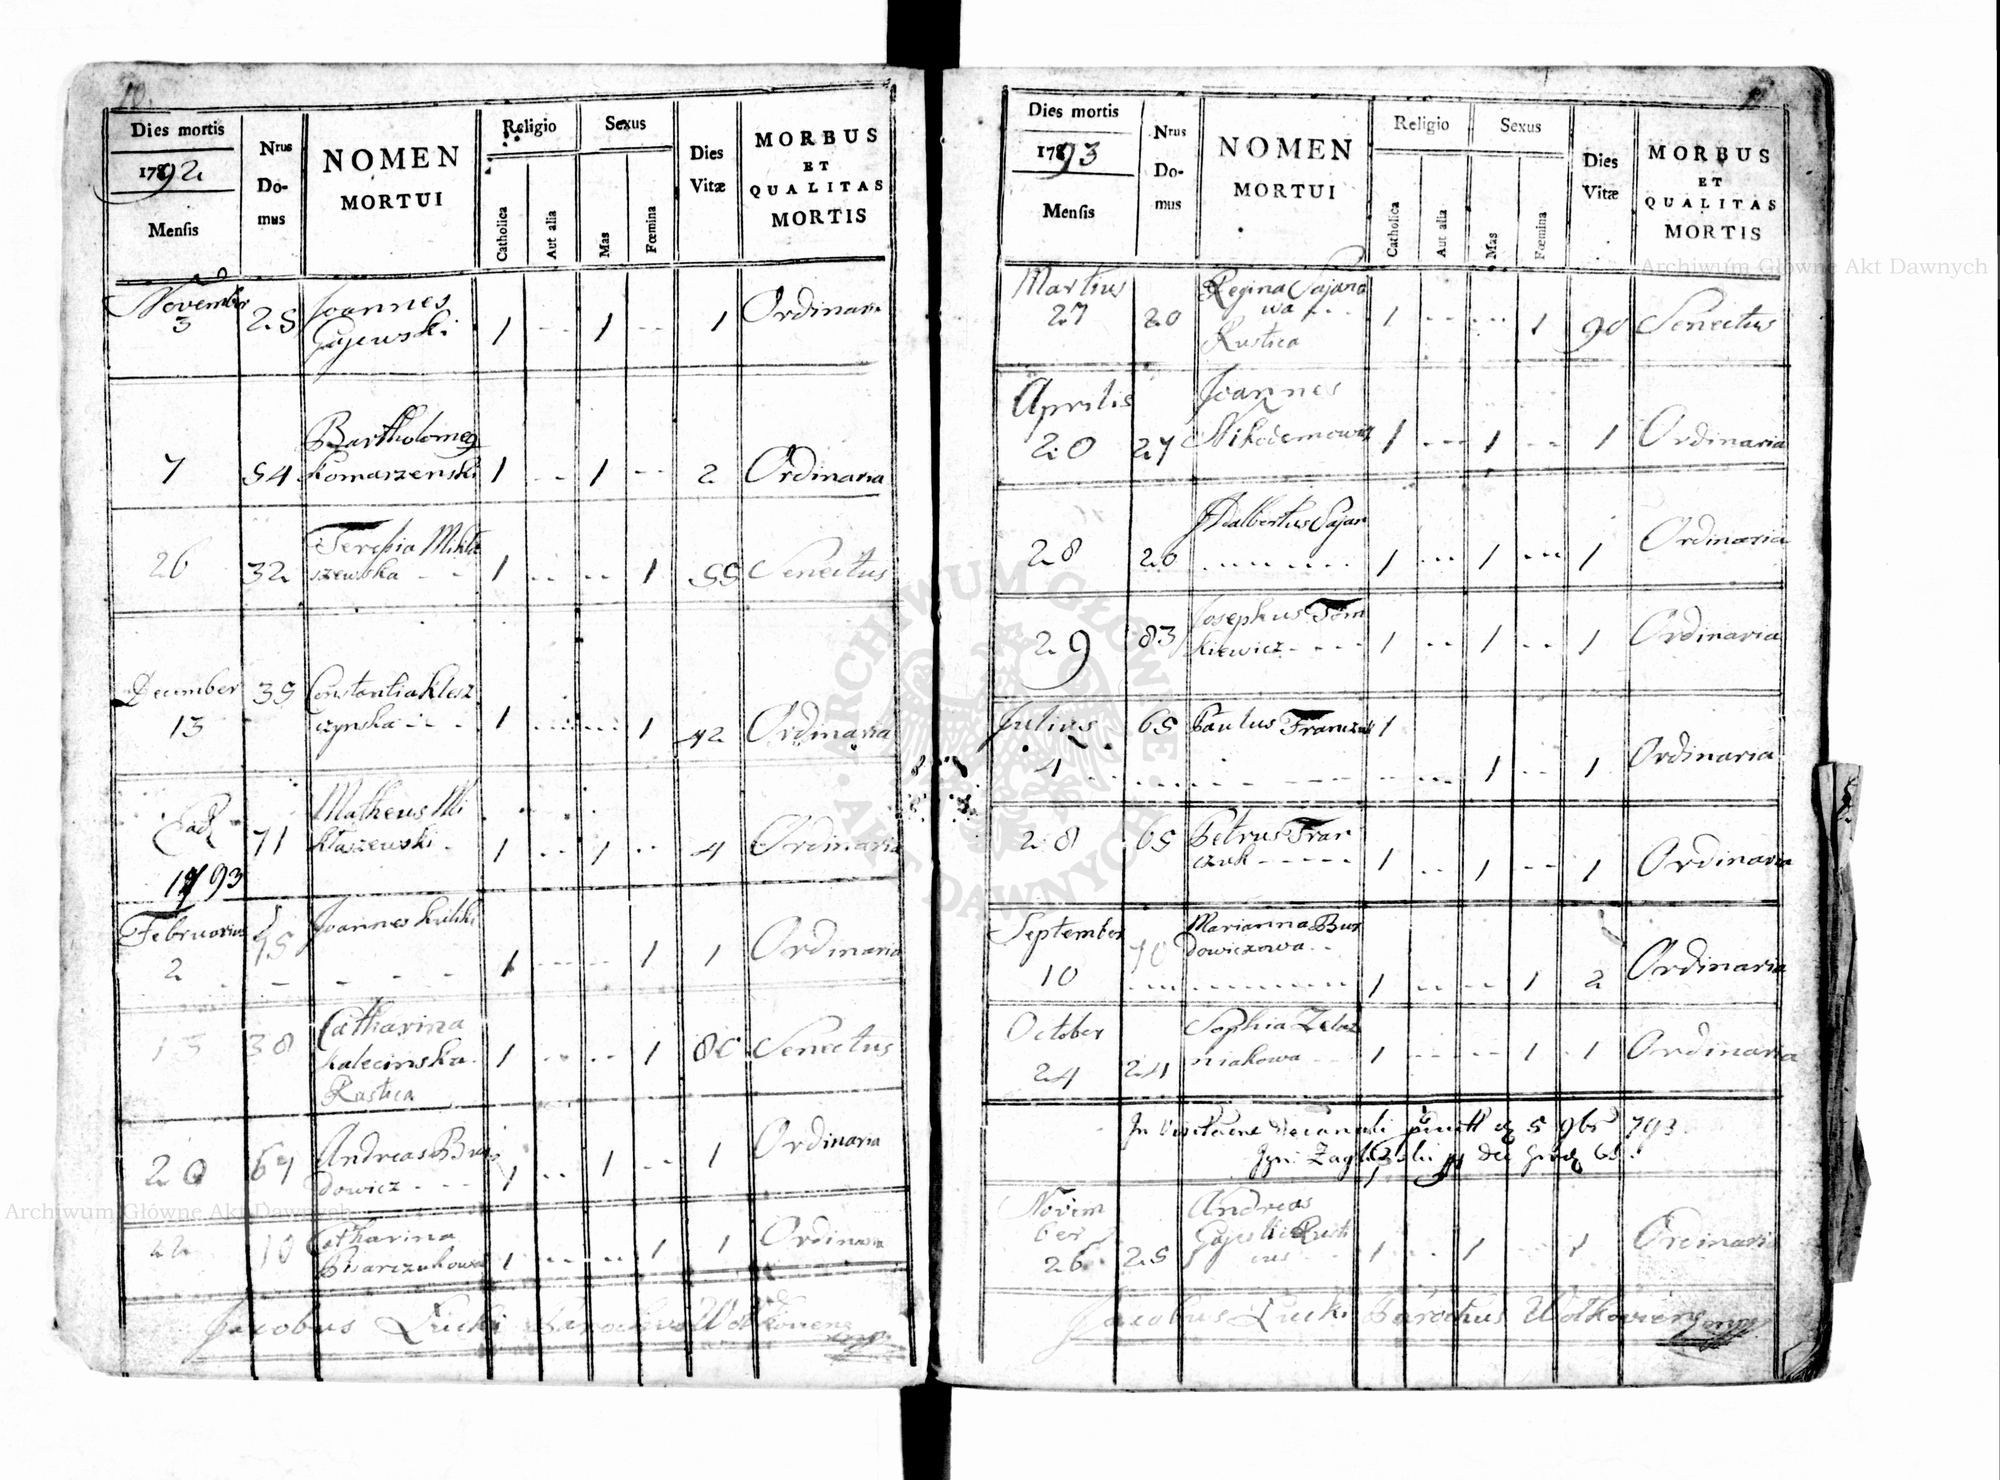 10.
Dies mortis
1792
Mensis
Nrus Do- mus
NOMEN
MORTUI
Religio
Catholica
Aut alia
Sexus
Mas
Fœmina
Dies
Vitæ
MORBUS
ET
QUALITAS
MORTIS
November 3 25 Joannes Gajewski 1 1 1 Ordinaria
7 54 Bartholomeg Komarzenski 1 1 2 Ordinaria
26 32 Teresia Mikła
szewska 1 1 55 Senectus
December 13 35 Constantia Klesz
czynska 1 1 42 Ordinaria
Ead 71 Matheus Mi
kłaszewski 1 1 4 Ordinaria
1793
Februarius 2 75 Joannes 1 1 1 Ordinaria
13 38 Catharina
Kalecinska
Rustica 1 1 80 Senectus
20 67 Andreas Bur
dowicz 1 1 1 Ordinaria
22 10 Catharina
Pisarczukowa 1 1 1 Ordinaria
Jacobus Łucki Parochus Wołkoviens mpp
Dies mortis
1793
Mensis
Nrus
Do-
mus
NOMEN
MORTUI
Religio
Catholica
Aut alia
Sexus
Mas
Fœmina
Dies
Vitæ
MORBUS
ET
QUALITAS
MORTIS
Martius 27 20 Regina Sajano
wa
Rustica 1 1 90 Senectus
Aprilis
20 27 Joannes
Nikodemowicz 1 1 1 Ordinaria
28 20 Adalbertus Sajan 1 1 1 Ordinaria
29 83 Josephus Tom
kiewicz 1 1 1 Ordinaria
Julius
4 65 Paulus Franczuk 1 1 1 Ordinaria
28 65 Petrus Fran
czuk 1 1 1 Ordinaria
September
10 70 Marianna Bur
dowiczowa 1 1 2 Ordinaria
October
24 24 Sophia Zelaz
niakowa 1 1 1 Ordinaria
In 5 9br 793
November
26 25 Andreas
Gajeski Rusti
cus 1 1 1 Ordinaria
Jacobus Łucki Parochus Wołkoviens mpp
Archiwum Główne Akt Dawnych
Archiwum Główne Akt Dawnych
ARCHIWUM GŁÓWNE AKT DAWNYCH